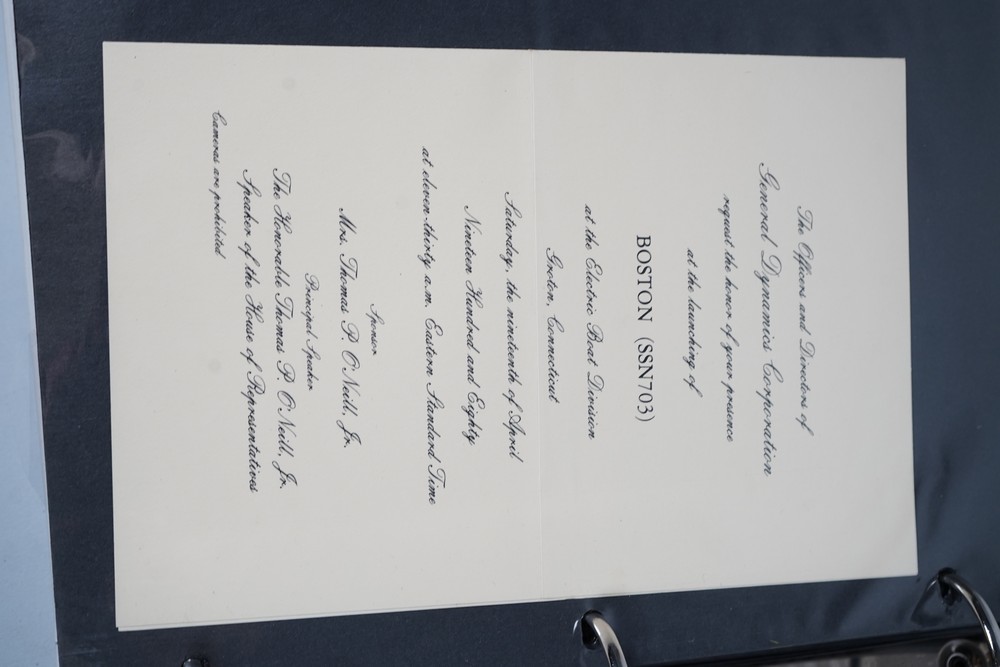 The Officers and Directors of
General Dynamics Corporation
request the honor of your presence
at the launching of
BOSTON (SSN703)
at the Electric Boat Division
Groton, Connecticut
Saturday, the nineteenth of April
Nineteen Hundred and Eighty
at eleven-thirty a.m. Eastern Standard Time
Sponsor
Mrs. Thomas P. O'Neill, Jr.
Principal Speaker
The Honorable Thomas P. O'Neill, Jr.
Speaker of the House of Representatives
Cameras are prohibited